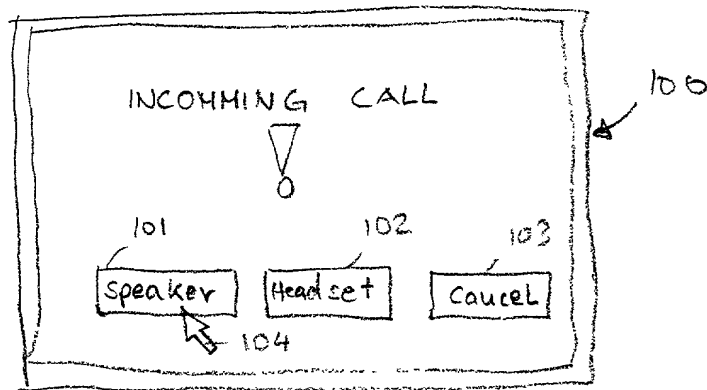 INCOMMING CALL
100
101
102
103
Speaker
Headset
Caucel
104